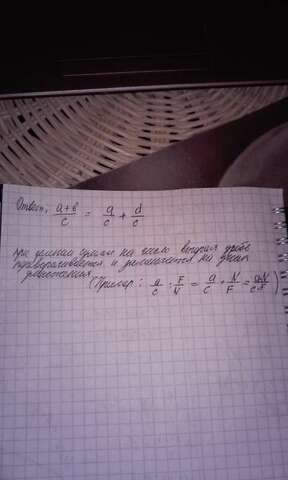 Ответ, a+b/c = a/c + d/c
при делении дроби на число вторая дробь
переворачивается и заменяется на знак
умножения.
(Пример: a/c : F/N = a/c · N/F = aN/cF)